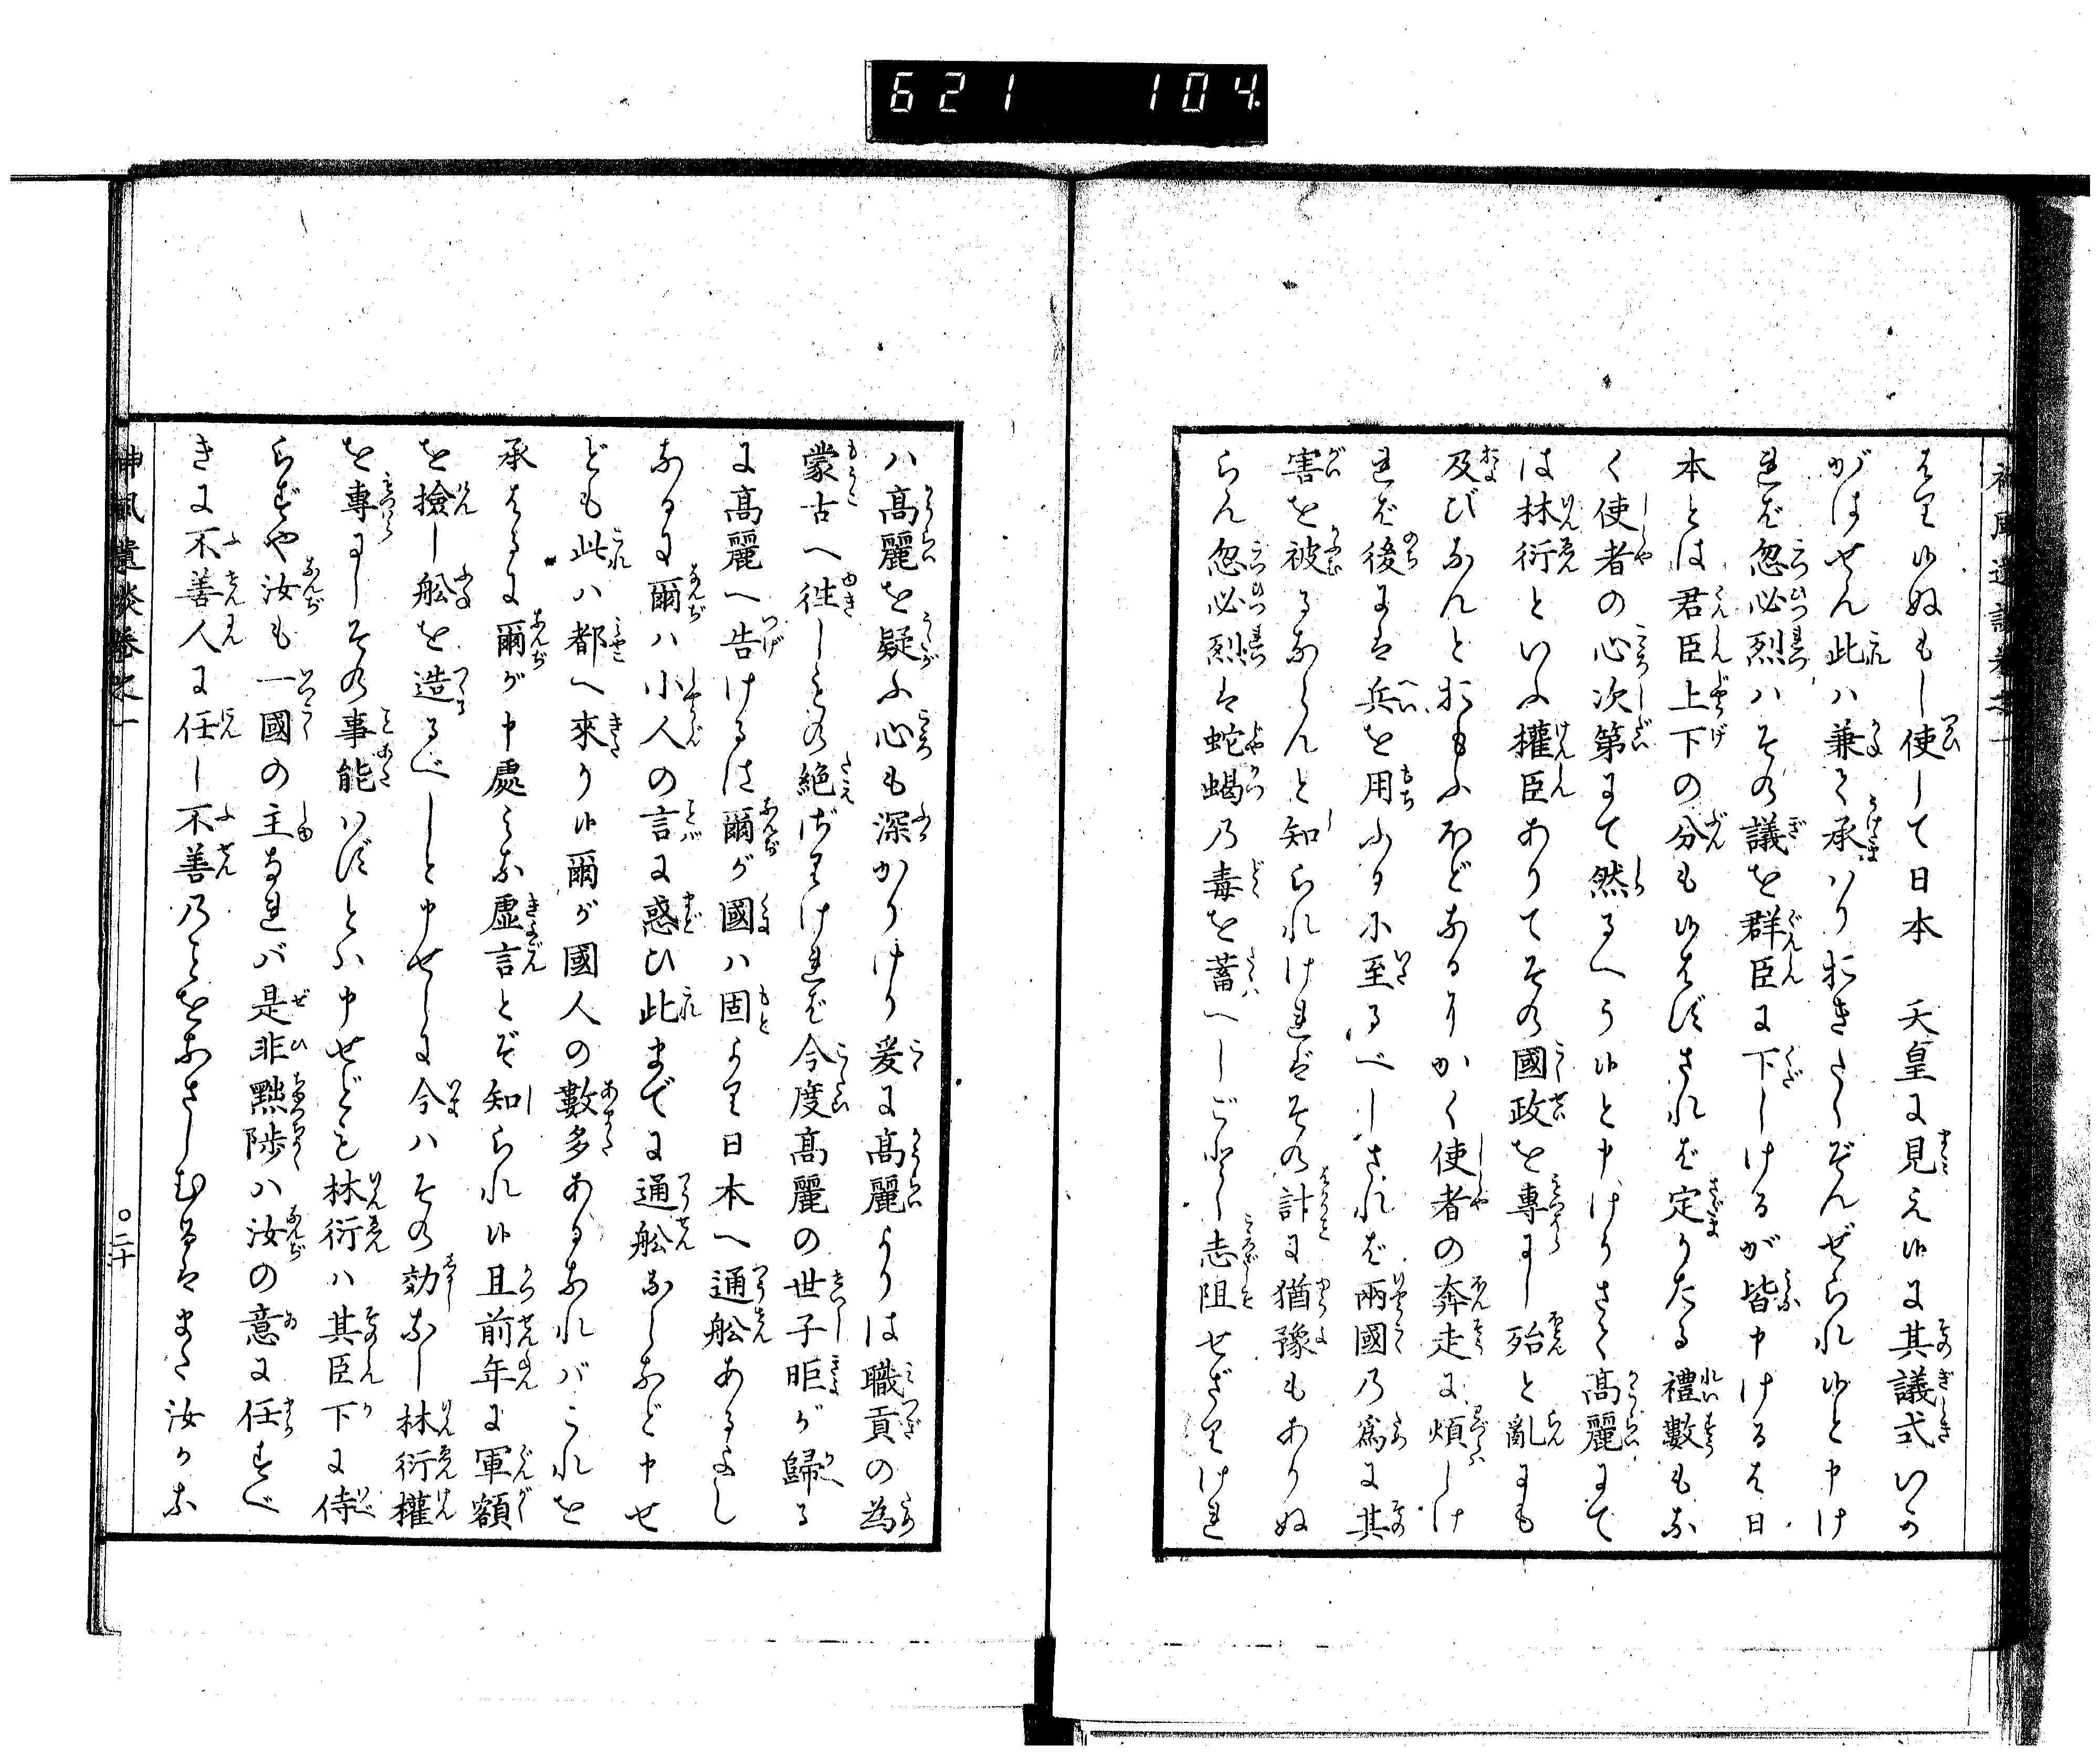 621 104
神風遺談卷之一
はり候ぬもし使して日本　天皇に見え候に其議式いか
がはせん此ハ兼て承ハりおきたくぞんぜられ候と申け
れば忽必烈ハその議を群臣に下しけるが皆申けるは日
本とは君臣上下の分も候はずされば定りたる禮數もな
く使者の心次第にて然るへう候と申けりさて高麗にて
は林衍といふ權臣ありてその國政を專にし殆と亂にも
及びなんとおもふほどなるにかく使者の奔走に煩しけ
れば後には兵を用ふるに至るべしされば兩國の為に其
害を被るならんと知られければその計に猶豫もありぬ
らん忽必烈は蛇蝎の毒を蓄へしごとし志阻せざりけれ
ハ高麗を疑ふ心も深かりけり爰に高麗よりは職貢の為
蒙古へ徃しもの絶ざりければ今度高麗の世子昛が歸る
に高麗へ告けるは爾が國ハ固より日本へ通舩あるよし
なるに爾ハ小人の言に惑ひ此までに通舩なしなど申せ
ども此ハ都へ來り候爾が國人の數多あるなれバこれを
承はるに爾が申處みな虚言とぞ知られ候且前年に軍額
を撿し舩を造るべしと申せしに今ハその効なし林衍權
を專にしその事能ハずとふ申せども林衍ハ其臣下に侍
らずや汝も一國の主なれバ是非黜陟ハ汝の意に任すべ
きに不善人に任し不善のことをなさしむるはまた汝かな
神風遺談卷之一
○二十